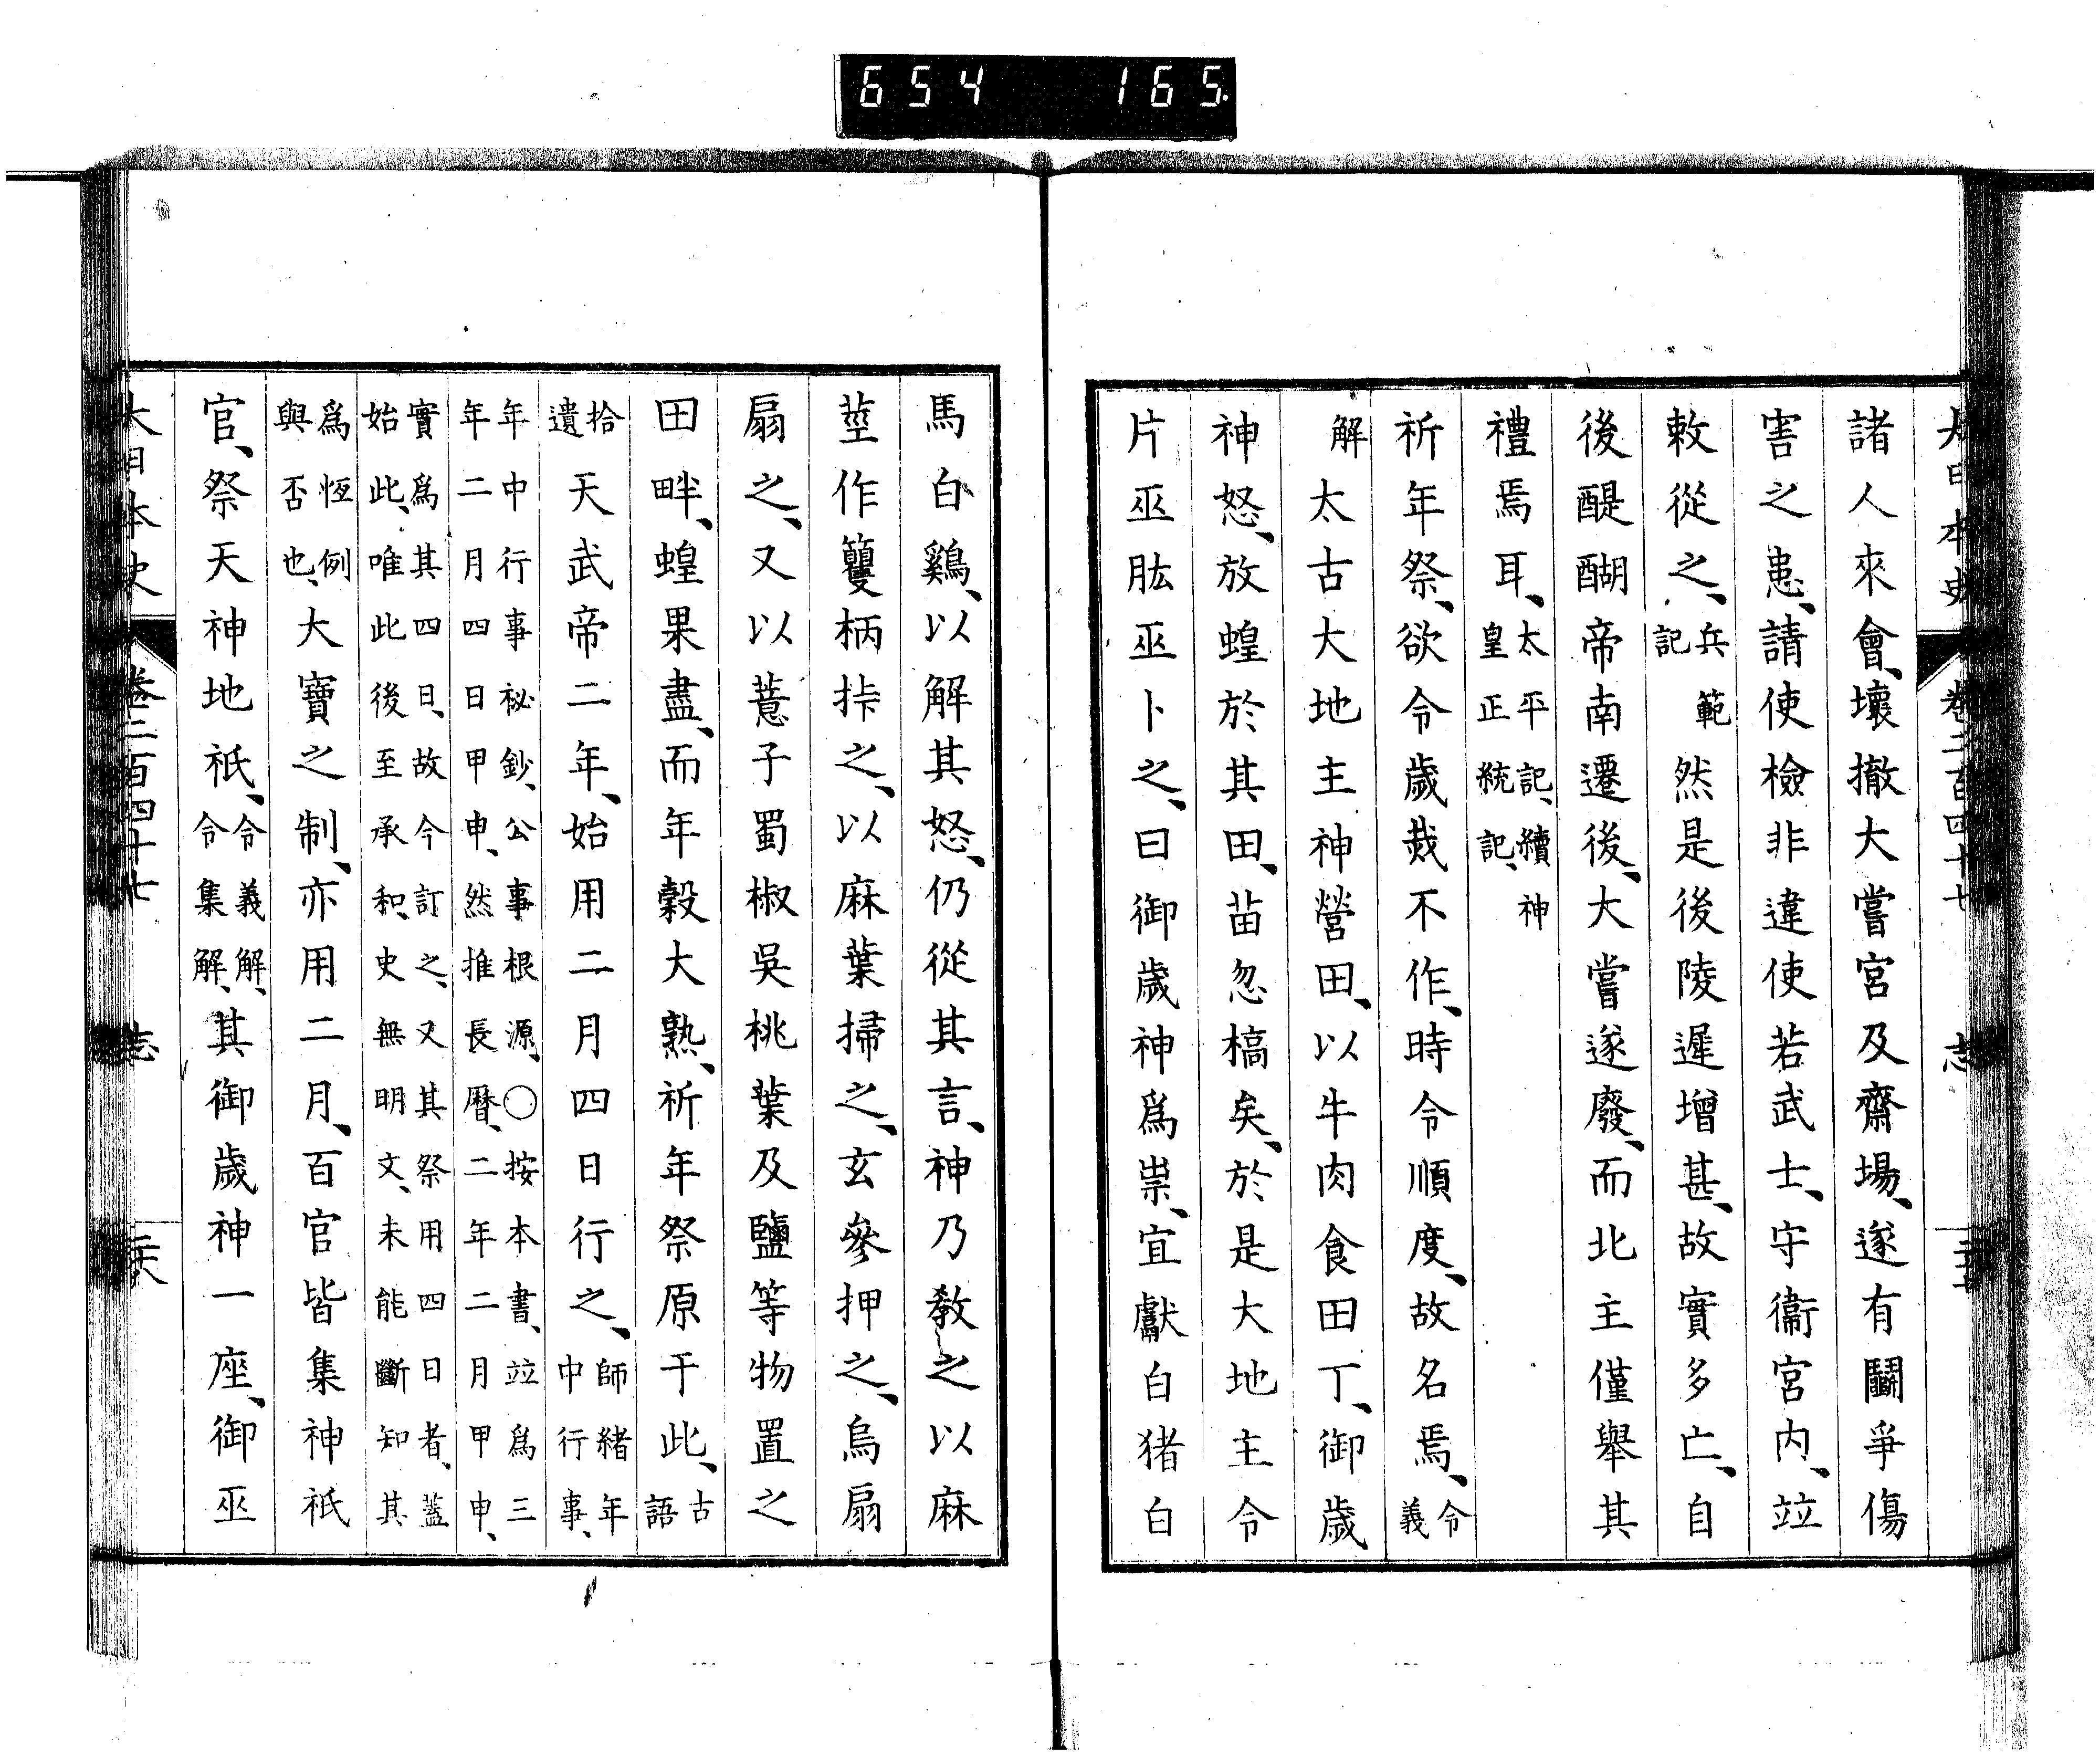 654 165
大日本史 卷二百四十七 志
諸人來會、壞撤大嘗宮及齋場、遂有鬭爭傷
害之患、請使檢非違使若武士、守衞宮內、竝
敕從之、兵範記 然是後陵遲增甚、故實多亡、自
後醍醐帝南遷後、大嘗遂廢、而北主僅舉其
禮焉耳、太平記、續神皇正統記、
祈年祭、欲令歲烖不作、時令順度、故名焉、令義
解 太古大地主神營田、以牛肉食田丁、御歲
神怒、放蝗於其田、苗忽槁矣、於是大地主令
片巫肱巫卜之、曰御歲神爲祟、宜獻白猪白
馬白鷄、以解其怒、仍從其言、神乃敎之以麻
莖作籰柄挊之、以麻葉掃之、玄參押之、烏扇
扇之、又以薏子蜀椒吳桃葉及鹽等物置之
田畔、蝗果盡、而年穀大熟、祈年祭原于此、古語
拾遺 天武帝二年、始用二月四日行之、師緒年中行事、
年中行事祕鈔、公事根源、○按本書、竝爲三
年二月四日甲申、然推長曆、二年二月甲申、
實爲其四日、故今訂之、又其祭用四日者、蓋
始此、唯此後至承和、史無明文、未能斷知其
爲恆例與否也、大寶之制、亦用二月、百官皆集神祇
官、祭天神地祇、令義解、令集解、其御歲神一座、御巫
大日本史 卷二百四十七 志 二十八